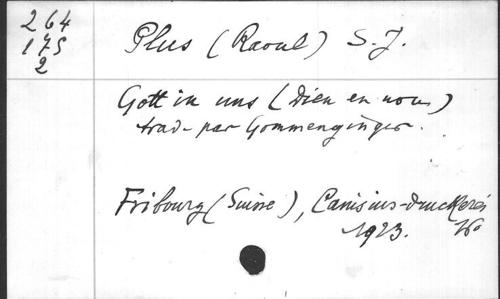 264
175
2
Plus (Raoul) S.J.
Gott in uns (Dieu en nous)
trad. par Gommenginger.
Fribourg (Suisse), Canisius-druckerei
1923. 16°